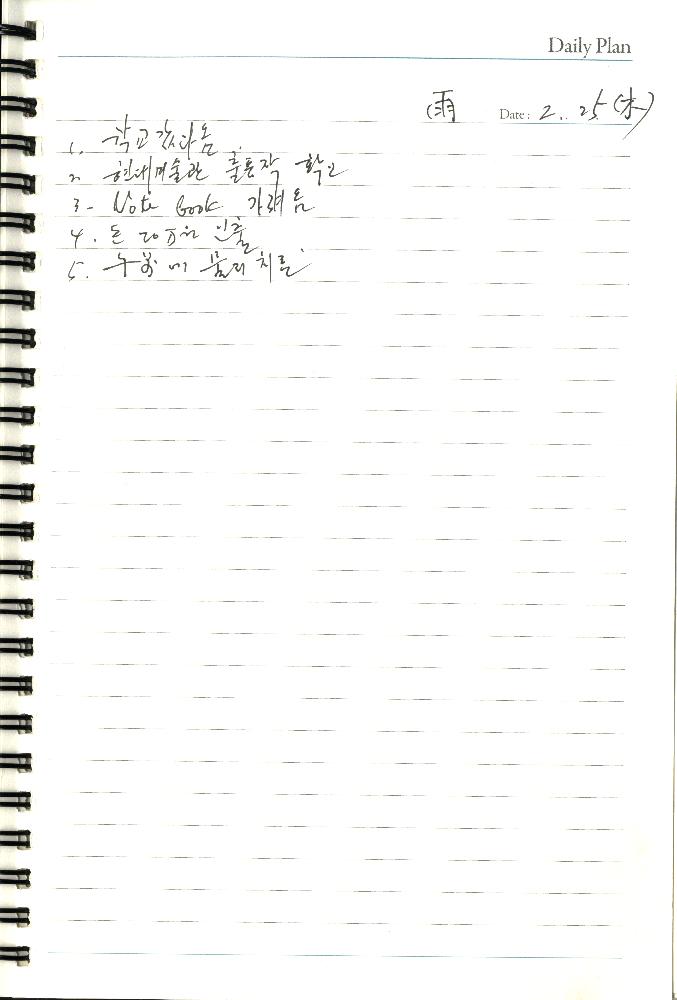 Daily Plan
(雨) Date: 2. 25 (水)
1. 학교 갔다 옴.
2. 현대미술관 출품작
3- Note Book 가져옴
4. 돈 20万원 인출
5. 午前에 물리치료